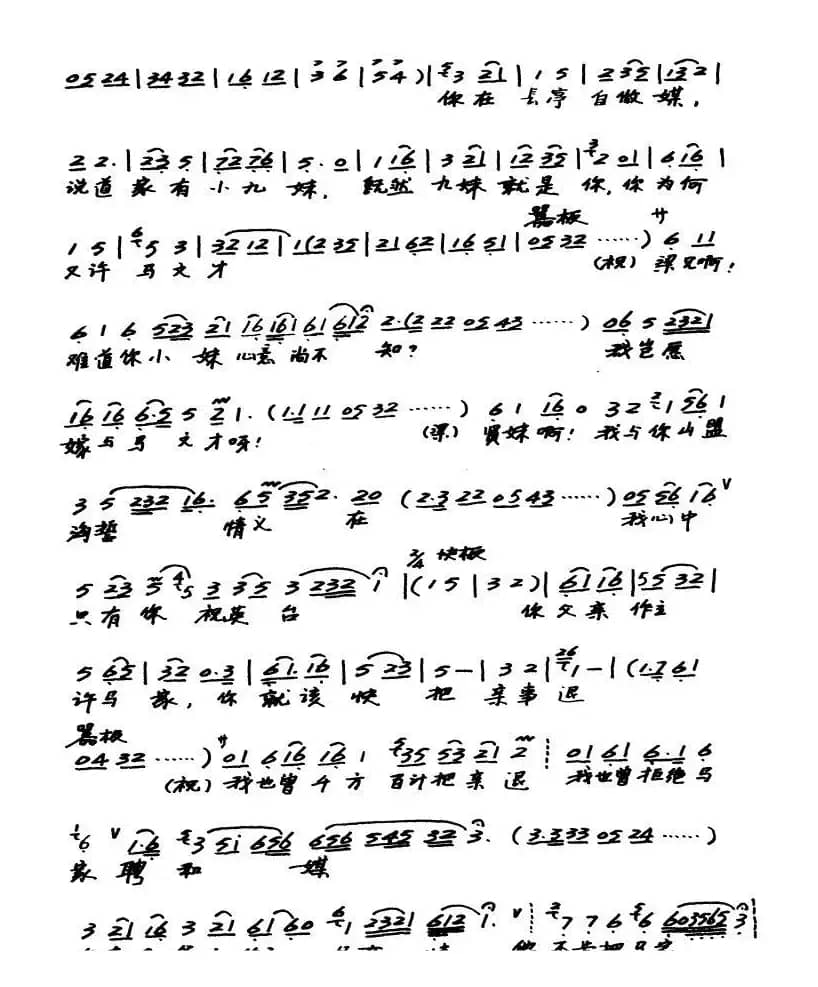 0524|3432|1612|36|54)|3 21|1 5|235|132|
你在 长亭 自做 媒，
2 2·|235|7276|5·0|116|321|1235|2 01|616|
说道 家有 小九 妹， 既然 九妹 就是 你，你 为何
1 5|5 3|3212|1(235|2162|1651|0532……) 6 11
嚣板 サ
又许 马文 才 (祝) 梁兄啊！
6 1 6 523 21 16 161 61 612 2·(2 22 0543……) 06 5 2321
难道你小妹 心意尚不 知？ 我岂愿
16 16 6·5 5 2 1·(1·1 11 0532……) 6 1 16 0 3 2 1 561
嫁与马 文才呀！ (梁) 贤妹啊！我与你山盟
3 5 232 16· 65 352· 20 (2·3 22 0543……) 05 56 16 V
海誓 情义 在 我心中
5 23 5 3 35 3 232 1 |(1 5|3 2)|61 16|55 32|
3/4 快板
只有你 祝英台 你父亲 作主
5 65|32 0·3|61·16|5 23|5 -|3 2|1 -|(1·7 61
许马 家，你 就该 快 把 亲事 退
嚣板
04 32……) サ 01 6 16 16 1 35 53 21 2 01 61 6·1 6
(祝)我也曾千方 百计把亲 退 我也曾拒绝马
6 V 1·6 3 51 656 656 545 32 3·(3·3 33 05 24……)
家 聘 和 媒
3 21 16 3 21 61 60 1 2321 612 1· V 7 7 6 6 603565 3